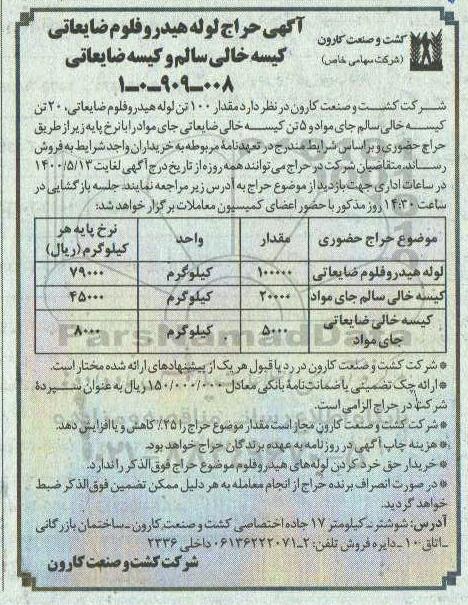 کشت و صنعت کارون
(شرکت سهامی خاص)
آگهی حراج لوله هیدروفلوم ضایعاتی
کیسه خالی سالم و کیسه ضایعاتی
۱-۰-۹۰۹-۰۰۸
شرکت کشت و صنعت کارون در نظر دارد مقدار ۱۰۰ تن لوله هیدروفلوم ضایعاتی، ۲۰ تن
کیسه خالی سالم جای مواد و ۵ تن کیسه خالی ضایعاتی جای مواد را با نرخ پایه زیر از طریق
حراج حضوری و براساس شرایط مندرج در تعهدنامه مربوطه به خریداران واجد شرایط به فروش
رساند. متقاضیان شرکت در حراج می‌توانند همه روزه از تاریخ درج آگهی لغایت ۱۴۰۰/۵/۱۳
در ساعات اداری جهت بازدید از موضوع حراج به آدرس زیر مراجعه نمایند. جلسه بازگشایی در
ساعت ۱۴:۳۰ روز مذکور با حضور اعضای کمیسیون معاملات برگزار خواهد شد:
موضوع حراج حضوری مقدار واحد نرخ پایه هر کیلوگرم (ریال)
لوله هیدروفلوم ضایعاتی ۱۰۰۰۰۰ کیلوگرم ۷۹۰۰۰
کیسه خالی سالم جای مواد ۲۰۰۰۰ کیلوگرم ۴۵۰۰۰
کیسه خالی ضایعاتی جای مواد ۵۰۰۰ کیلوگرم ۸۰۰۰
* شرکت کشت و صنعت کارون در رد یا قبول هر یک از پیشنهادهای ارائه شده مختار است.
* ارائه چک تضمینی یا ضمانت‌نامه بانکی معادل ۱۵۰/۰۰۰/۰۰۰ ریال به عنوان سپرده
شرکت در حراج الزامی است.
* شرکت کشت و صنعت کارون مجاز است مقدار موضوع حراج را ۲۵٪ کاهش و یا افزایش دهد.
* هزینه چاپ آگهی در روزنامه به عهده برندگان حراج خواهد بود.
* خریدار حق خرد کردن لوله‌های هیدروفلوم موضوع حراج فوق‌الذکر را ندارد.
* در صورت انصراف برنده حراج از انجام معامله به هر دلیل ممکن تضمین فوق‌الذکر ضبط
خواهد گردید.
آدرس: شوشتر ـ کیلومتر ۱۷ جاده اختصاصی کشت و صنعت کارون ـ ساختمان بازرگانی
ـ اتاق ۱۰ ـ دایره فروش تلفن: ۲ـ۰۶۱۳۶۲۲۲۰۷۱ داخلی ۲۳۳۶
شرکت کشت و صنعت کارون
ParsNamadData